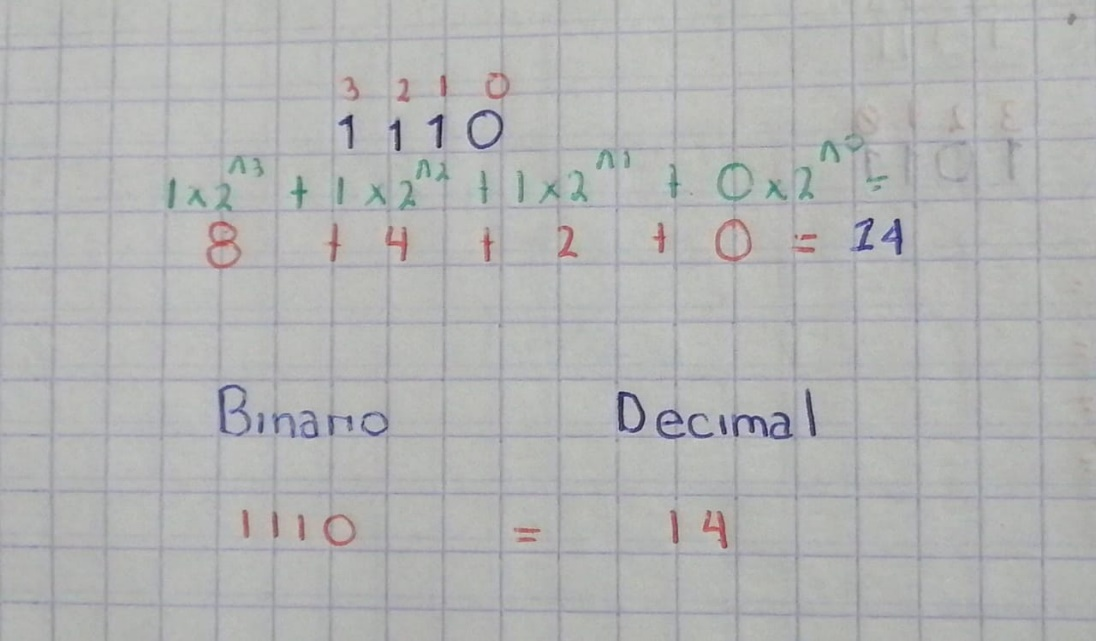 3 2 1 0
1 1 1 0
1x2^3 + 1x2^2 + 1x2^1 + 0x2^0 =
8 + 4 + 2 + 0 = 14
Binario Decimal
1110 = 14